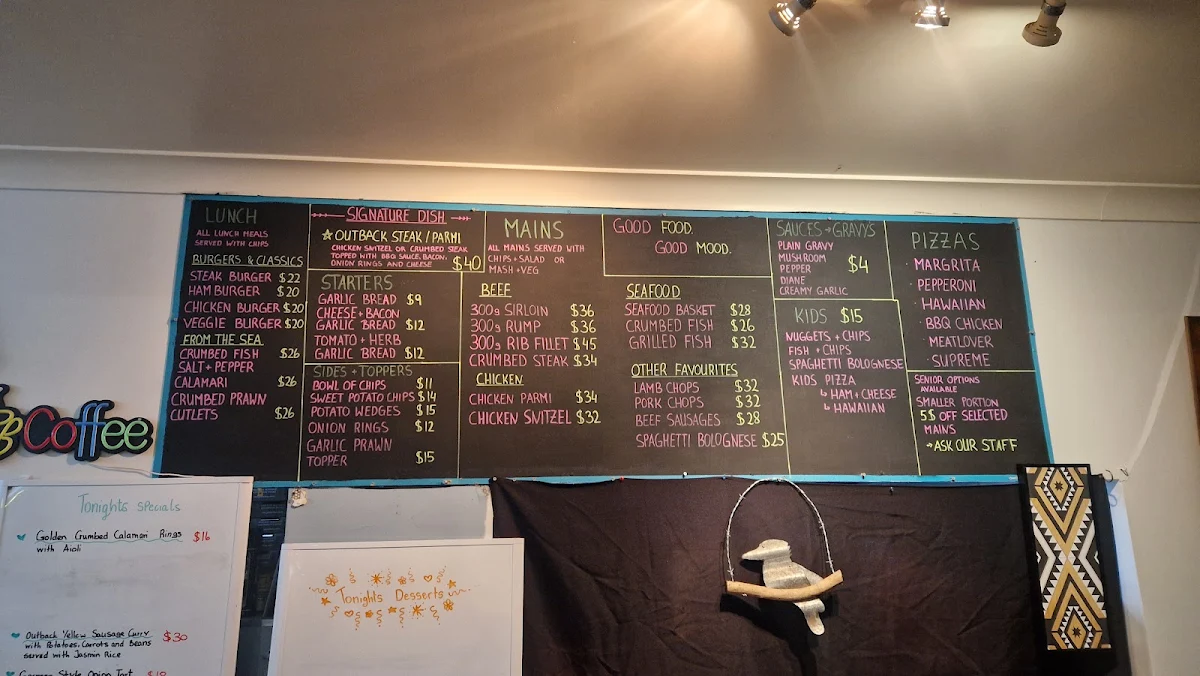 LUNCH
ALL LUNCH MEALS
SERVED WITH CHIPS
BURGERS & CLASSICS
STEAK BURGER $22
HAM BURGER $20
CHICKEN BURGER $20
VEGGIE BURGER $20
FROM THE SEA
CRUMBED FISH $26
SALT + PEPPER
CALAMARI $26
CRUMBED PRAWN
CUTLETS $26
SIGNATURE DISH
OUTBACK STEAK / PARMI
CHICKEN SNITZEL OR CRUMBED STEAK
TOPPED WITH BBQ SAUCE, BACON,
ONION RINGS AND CHEESE $40
STARTERS
GARLIC BREAD $9
CHEESE + BACON
GARLIC BREAD $12
TOMATO + HERB
GARLIC BREAD $12
SIDES + TOPPERS
BOWL OF CHIPS $11
SWEET POTATO CHIPS $14
POTATO WEDGES $15
ONION RINGS $12
GARLIC PRAWN
TOPPER $15
MAINS
ALL MAINS SERVED WITH
CHIPS + SALAD OR
MASH + VEG
BEEF
300g SIRLOIN $36
300g RUMP $36
300g RIB FILLET $45
CRUMBED STEAK $34
CHICKEN
CHICKEN PARMI $34
CHICKEN SNITZEL $32
GOOD FOOD.
GOOD MOOD.
SEAFOOD
SEAFOOD BASKET $28
CRUMBED FISH $26
GRILLED FISH $32
OTHER FAVOURITES
LAMB CHOPS $32
PORK CHOPS $32
BEEF SAUSAGES $28
SPAGHETTI BOLOGNESE $25
SAUCES + GRAVYS
PLAIN GRAVY
MUSHROOM
PEPPER $4
DIANE
CREAMY GARLIC
KIDS $15
NUGGETS + CHIPS
FISH + CHIPS
SPAGHETTI BOLOGNESE
KIDS PIZZA
↳ HAM + CHEESE
↳ HAWAIIAN
PIZZAS
· MARGRITA
· PEPPERONI
· HAWAIIAN
· BBQ CHICKEN
· MEATLOVER
· SUPREME
SENIOR OPTIONS
AVAILABLE
SMALLER PORTION
5$ OFF SELECTED
MAINS
→ ASK OUR STAFF
Coffee
Tonights Specials
Golden Crumbed Calamari Rings $16
with Aioli
Outback Yellow Sausage Curry $30
with Potatoes, Carrots and Beans
served with Jasmin Rice
Style Onion Tart
Tonights Desserts